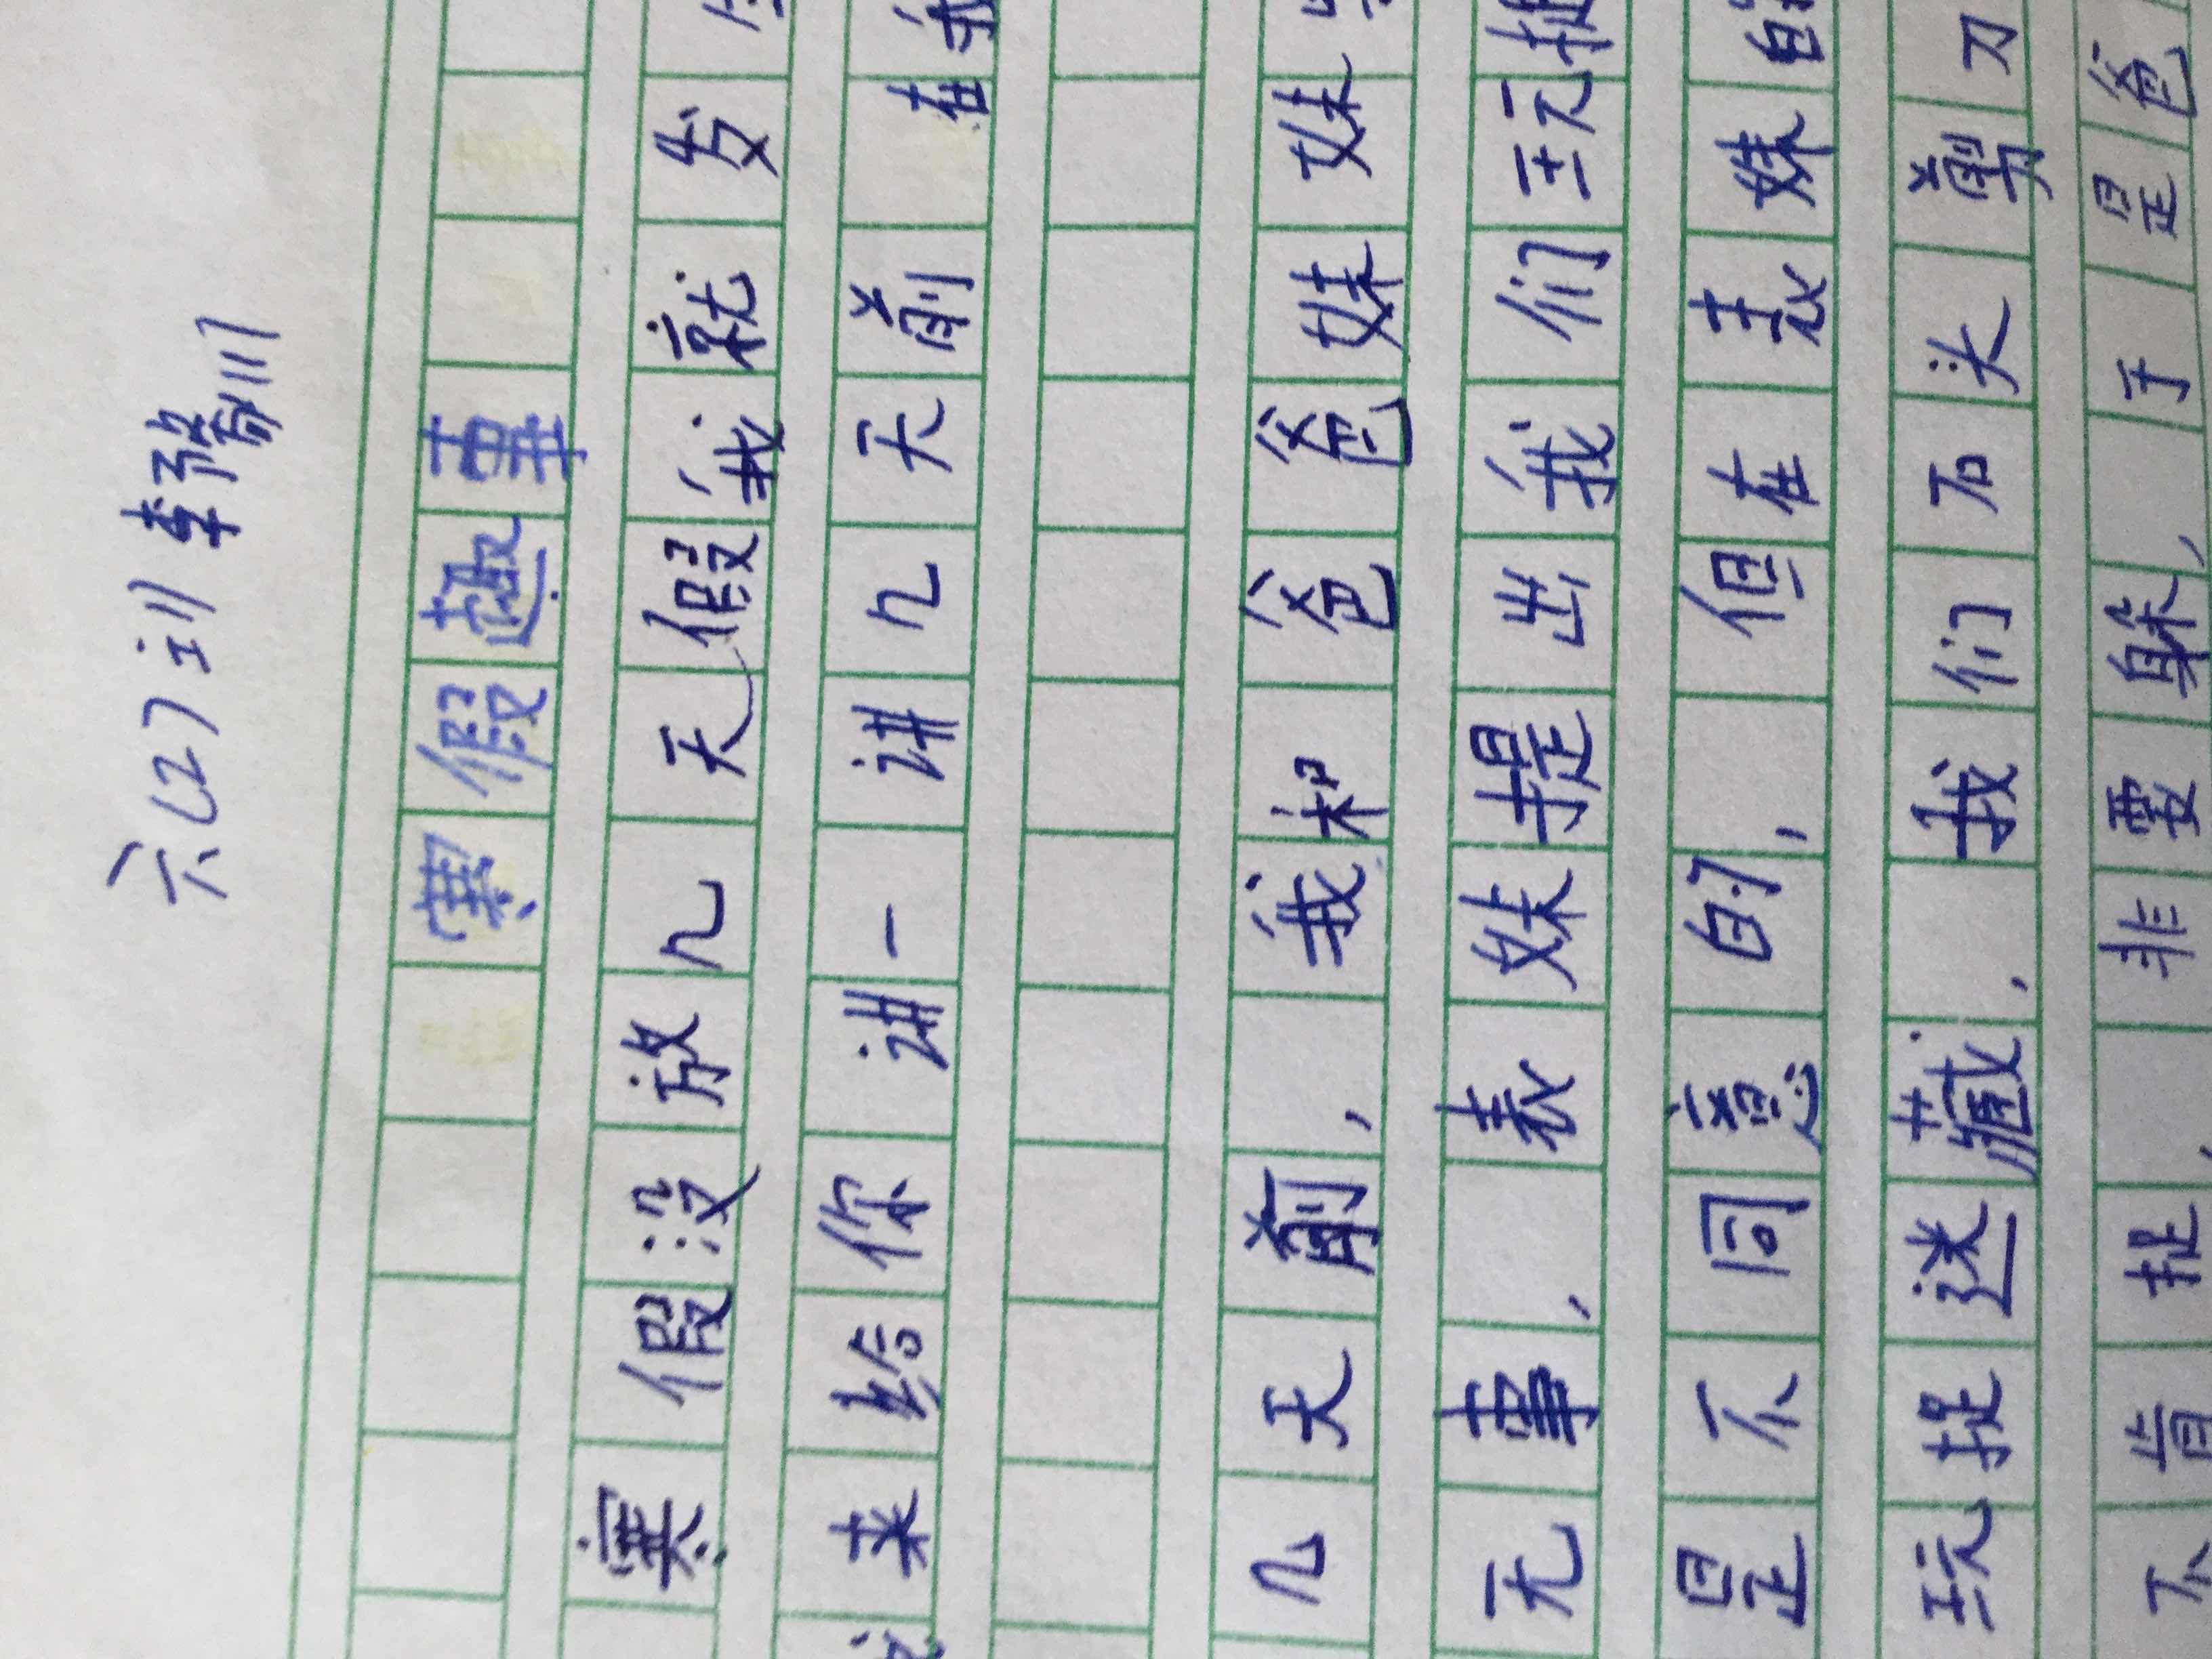 六(2)班 李川
寒假趣事
寒假没放几天假我就发
来给你讲一讲几天前在
几天前，我和爸爸妹妹
无事，表妹提出我们玩捉
是不同意的，但在表妹的
玩捉迷藏，我们石头剪刀
不肯捉，非要躲，于是爸